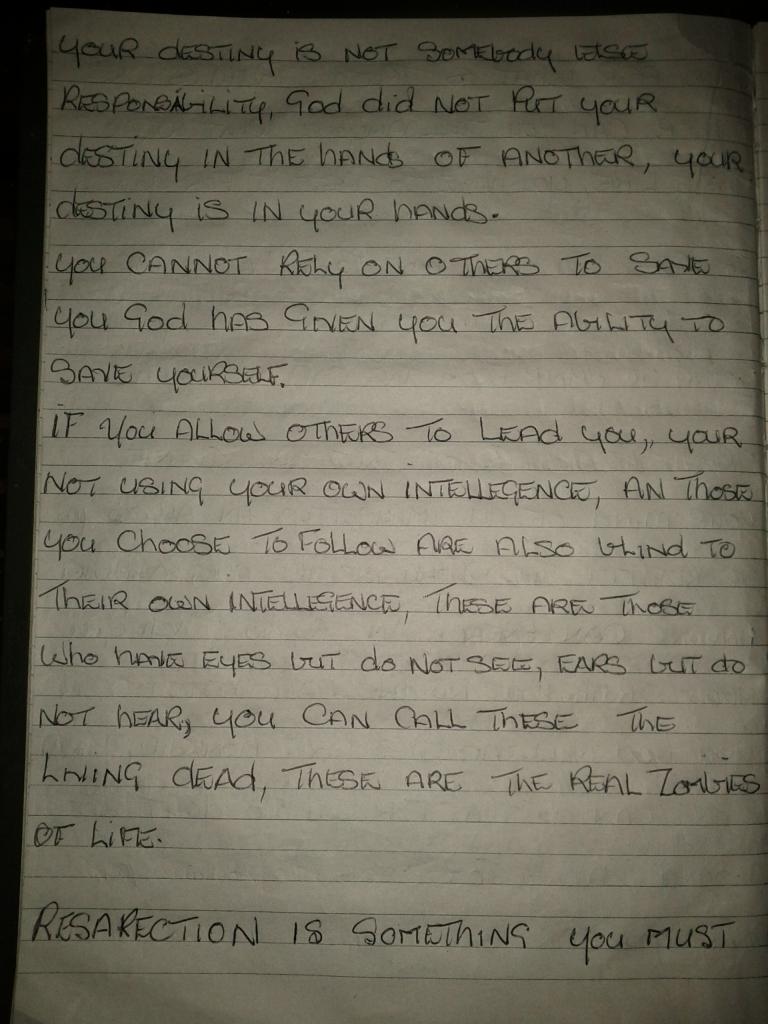 YOUR DESTINY IS NOT SOMEBODY ELSE
RESPONSIBILITY, God did NOT PUT YOUR
DESTINY IN THE HANDS OF ANOTHER, YOUR
DESTINY IS IN YOUR HANDS.
YOU CANNOT RELY ON OTHERS TO SAVE
YOU God HAS GIVEN YOU THE ABILITY TO
SAVE YOURSELF.
IF YOU ALLOW OTHERS TO LEAD YOU,, YOUR
NOT USING YOUR OWN INTELLEGENCE, AN THOSE
YOU CHOOSE TO FOLLOW ARE ALSO BLIND TO
THEIR OWN INTELLEGENCE, THESE ARE THOSE
WHO HAVE EYES BUT do NOT SEE, EARS BUT do
NOT HEAR, YOU CAN CALL THESE THE
LIVING DEAD, THESE ARE THE REAL ZOMBIES
OF LIFE.
RESARECTION IS SOMETHING YOU MUST